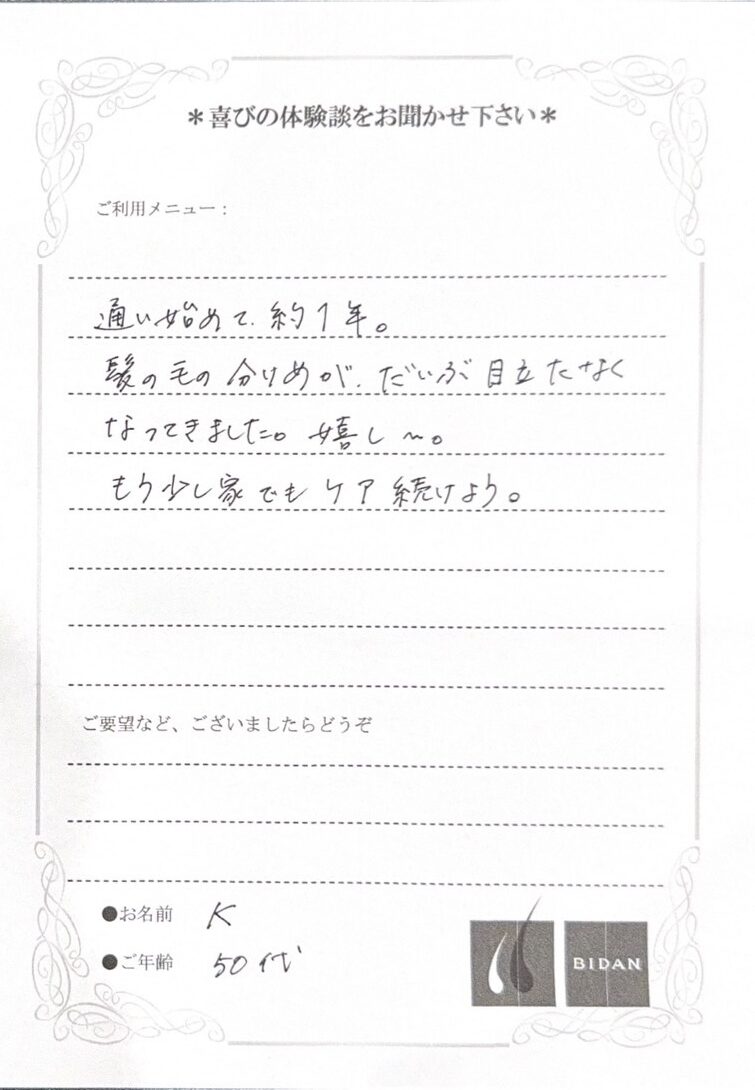 ＊喜びの体験談をお聞かせ下さい＊
ご利用メニュー：
通い始めて、約1年。
髪の毛の分けめが、だいぶ目立たなく
なってきました。嬉し〜。
もう少し家でもケア続けよう。
ご要望など、ございましたらどうぞ
●お名前 K
●ご年齢 50代
BIDAN